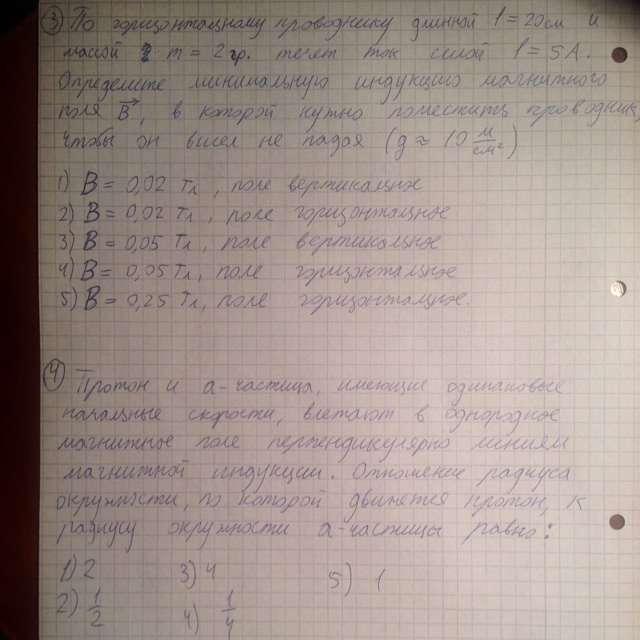 3) По горизонтальному проводнику длинной l = 20см и
массой m = 2 гр. течет ток силой I = 5А.
Определите минимальную индукцию магнитного
поля B⃗, в которой нужно поместить проводник,
чтобы он висел не падая (g ≈ 10 м/см²)
1) B = 0,02 Тл, поле вертикальное
2) B = 0,02 Тл, поле горизонтальное
3) B = 0,05 Тл, поле вертикальное
4) B = 0,05 Тл, поле горизонтальное
5) B = 0,25 Тл, поле горизонтальное.
4) Протон и α-частица, имеющие одинаковые
начальные скорости, влетают в однородное
магнитное поле перпендикулярно линиям
магнитной индукции. Отношение радиуса
окружности, по которой движется протон, к
радиусу окружности α-частицы равно:
1) 2 3) 4 5) 1
2) 1/2 4) 1/4